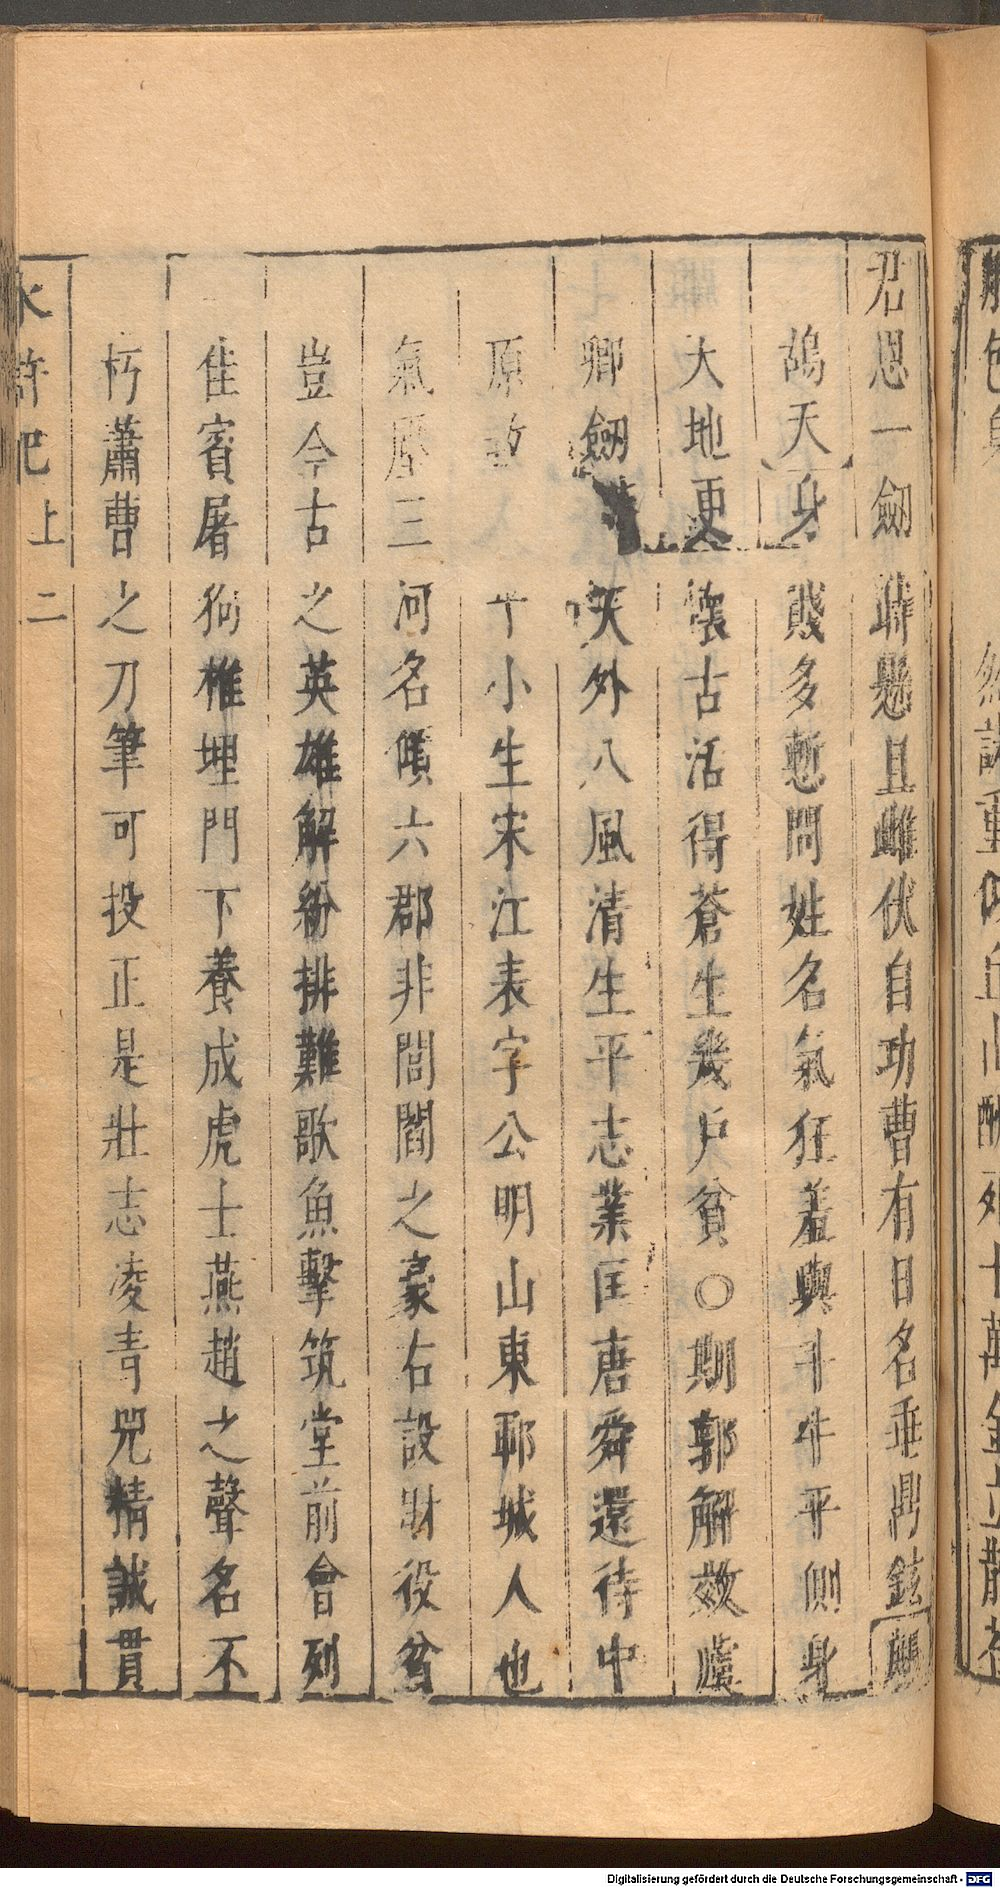 君恩一劍聊懸且雌伏自功曹有日名垂鼎鉉鷓
鴣天身賤多慙問姓名氣狂羞與斗牛平側身
大地更懷古活得蒼生幾戶貧○期郭解效虞
卿劍天外八風清生平志業匡唐舜還待中
原小生宋江表字公明山東鄆城人也
氣壓三河名傾六郡非閭閻之豪右設財役貧
豈今古之英雄解紛排難歌魚擊筑堂前會列
佳賓屠狗椎埋門下養成虎士燕趙之聲名不
朽蕭曹之刀筆可投正是壯志凌青兕精誠貫
水滸記上 二
Digitalisierung gefördert durch die Deutsche Forschungsgemeinschaft - DFG